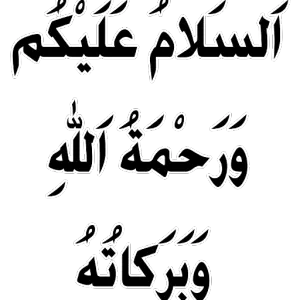 اَلسَلامُ عَلَيْكُم
وَرَحْمَةُ اَللهِ
وَبَرَكاتُهُ